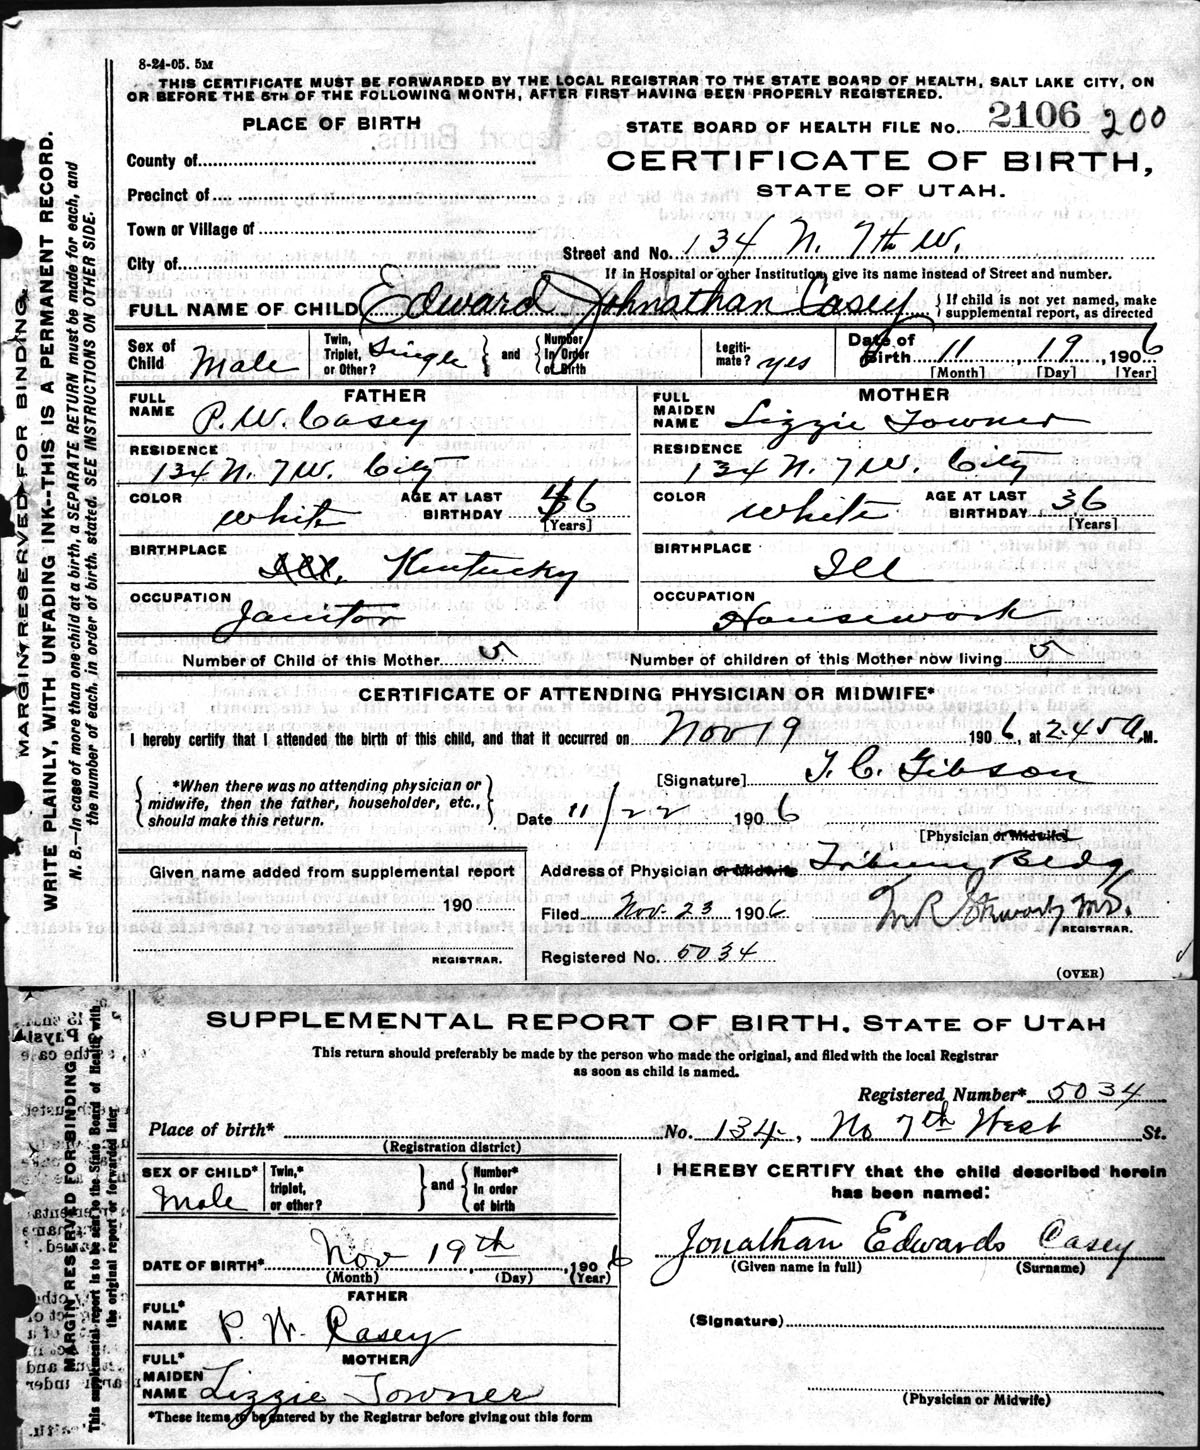 8-24-05. 5M
THIS CERTIFICATE MUST BE FORWARDED BY THE LOCAL REGISTRAR TO THE STATE BOARD OF HEALTH, SALT LAKE CITY, ON
OR BEFORE THE 5TH OF THE FOLLOWING MONTH, AFTER FIRST HAVING BEEN PROPERLY REGISTERED.
PLACE OF BIRTH
STATE BOARD OF HEALTH FILE NO. 2106 200
County of
CERTIFICATE OF BIRTH,
Precinct of
STATE OF UTAH.
Town or Village of
Street and No. 134 N. 7th W.
City of
If in Hospital or other Institution, give its name instead of Street and number.
FULL NAME OF CHILD Edward Johnathan Casey { If child is not yet named, make supplemental report, as directed
Sex of Child Male Twin, Triplet, or Other? Single } and { Number In Order of Birth Legiti-mate? yes Date of Birth 11, 19, 1906
[Month] [Day] [Year]
FATHER MOTHER
FULL NAME P. W. Casey FULL MAIDEN NAME Lizzie Towner
RESIDENCE 134 N. 7 W. City RESIDENCE 134 N. 7 W. City
COLOR White AGE AT LAST BIRTHDAY 46 [Years] COLOR White AGE AT LAST BIRTHDAY 36 [Years]
BIRTHPLACE Ill. Kentucky BIRTHPLACE Ill
OCCUPATION Janitor OCCUPATION Housework
Number of Child of this Mother 5 Number of children of this Mother now living 5
CERTIFICATE OF ATTENDING PHYSICIAN OR MIDWIFE*
I hereby certify that I attended the birth of this child, and that it occurred on Nov 19 1906, at 2.45 A.M.
[Signature] T. C. Gibson
{ *When there was no attending physician or midwife, then the father, householder, etc., should make this return. }
Date 11/22 1906
[Physician or Midwife]
Given name added from supplemental report
Address of Physician or Midwife Tribune Bldg
190
Filed Nov. 23 1906 M.D.
REGISTRAR.
REGISTRAR.
Registered No. 5034
(OVER)
MARGIN RESERVED FOR BINDING.
WRITE PLAINLY, WITH UNFADING INK--THIS IS A PERMANENT RECORD.
N. B.—In case of more than one child at a birth, a SEPARATE RETURN must be made for each, and
the number of each, in order of birth, stated. SEE INSTRUCTIONS ON OTHER SIDE.
SUPPLEMENTAL REPORT OF BIRTH. STATE OF UTAH
This return should preferably be made by the person who made the original, and filed with the local Registrar
as soon as child is named.
Registered Number* 5034
Place of birth* No. 134, No 7th West St.
(Registration district)
SEX OF CHILD* Male Twin,* triplet, or other? } and { Number* In order of birth
I HEREBY CERTIFY that the child described herein
has been named:
DATE OF BIRTH* Nov 19th, 1906
(Month) (Day) (Year)
Jonathan Edwards Casey
(Given name in full) (Surname)
FATHER
FULL* NAME P. W. Casey
(Signature)
MOTHER
FULL* MAIDEN NAME Lizzie Towner
(Physician or Midwife)
*These items to be entered by the Registrar before giving out this form
MARGIN RESERVED FOR BINDING
This supplemental report is to be sent to the State Board of Health with
the original report or forwarded later.